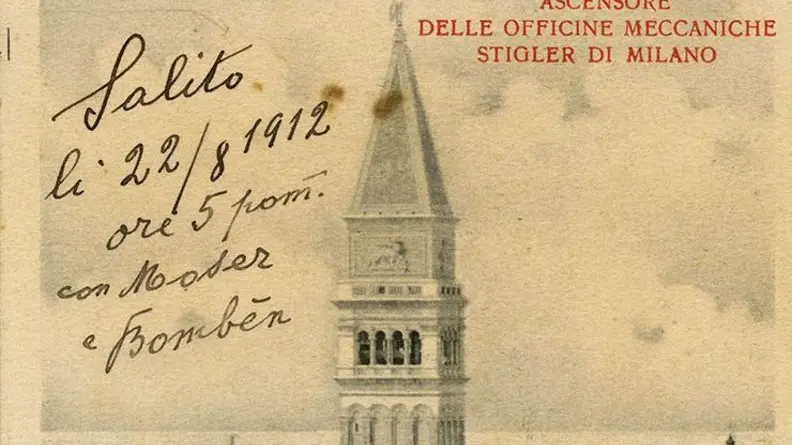 ASCENSORE
DELLE OFFICINE MECCANICHE
STIGLER DI MILANO
Salito
li 22/8 1912
ore 5 pom.
con Moser
e Bombēn